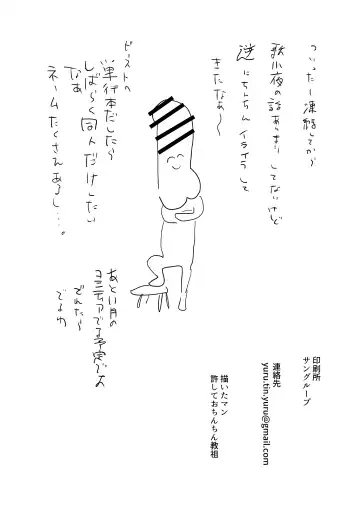 ついったー凍結してから
秋小夜の話あんまりしてないけど
逆にちんちんイライラして
きたなぁ〜
ドーストへ
単行本だしたら
しばらく同人だけしたい
なぁ
ネームたくさんあるし…。
あと11月の
コミティアでる予定でよ
でれたら
でるわ
印刷所
サングループ
連絡先
yuru.tin.yuru@gmail.com
描いたマン
許しておちんちん教祖